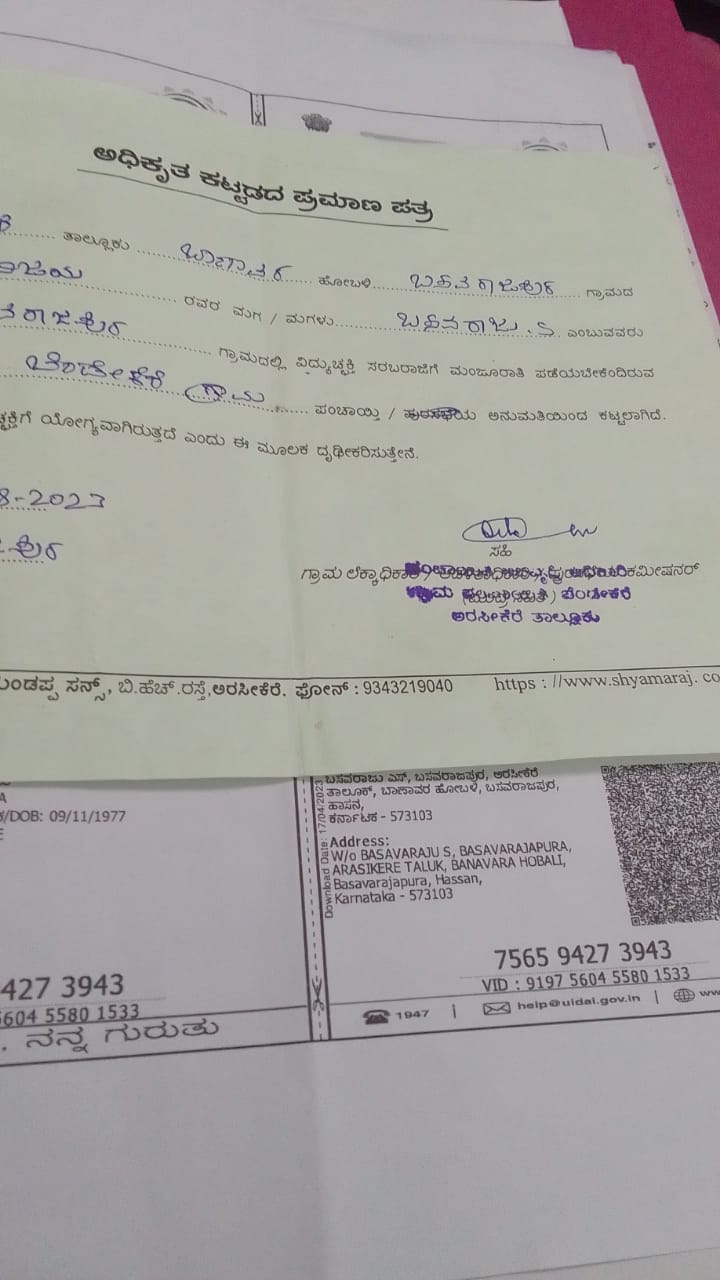 ಅಧಿಕೃತ ಕಟ್ಟಡದ ಪ್ರಮಾಣ ಪತ್ರ
ತಾಲ್ಲೂಕು ಬಾಣಾವರ ಹೋಬಳಿ ಬಸವರಾಜಪುರ ಗ್ರಾಮದ
ರವರ ಮಗ / ಮಗಳು ಬಸವರಾಜು. S ಎಂಬುವವರು
ರಾಜಪುರ ಗ್ರಾಮದಲ್ಲಿ ವಿದ್ಯುಚ್ಛಕ್ತಿ ಸರಬರಾಜಿಗೆ ಮಂಜೂರಾತಿ ಪಡೆಯಬೇಕೆಂದಿರುವ
ಬೆಂಡೇಕೆರೆ ಗ್ರಾಮ ಪಂಚಾಯ್ತಿ / ಪುರಸಭೆಯ ಅನುಮತಿಯಿಂದ ಕಟ್ಟಲಾಗಿದೆ.
ಚ್ಛಕ್ತಿಗೆ ಯೋಗ್ಯವಾಗಿರುತ್ತದೆ ಎಂದು ಈ ಮೂಲಕ ದೃಢೀಕರಿಸುತ್ತೇನೆ.
8-2023
ಪುರ
ಸಹಿ
ಗ್ರಾಮ ಲೆಕ್ಕಾಧಿಕಾರಿ / ಕಮೀಷನರ್
ಬೆಂಡೇಕೆರೆ
ಅರಸೀಕೆರೆ ತಾಲ್ಲೂಕು
ಂಡಪ್ಪ ಸನ್ಸ್, ಬಿ.ಹೆಚ್.ರಸ್ತೆ, ಅರಸೀಕೆರೆ. ಫೋನ್ : 9343219040 https : //www.shyamaraj. co
ಬಸವರಾಜು ಎಸ್, ಬಸವರಾಜಪುರ, ಅರಸೀಕೆರೆ
ತಾಲೂಕ್, ಬಾಣಾವರ ಹೋಬಳಿ, ಬಸವರಾಜಪುರ,
ಹಾಸನ,
ಕರ್ನಾಟಕ - 573103
Address:
W/o BASAVARAJU S, BASAVARAJAPURA,
ARASIKERE TALUK, BANAVARA HOBALI,
Basavarajapura, Hassan,
Karnataka - 573103
Download Date: 17/04/2023
A
/DOB: 09/11/1977
E
7565 9427 3943
VID : 9197 5604 5580 1533
1947 | help@uidai.gov.in | ww
427 3943
5604 5580 1533
. ನನ್ನ ಗುರುತು